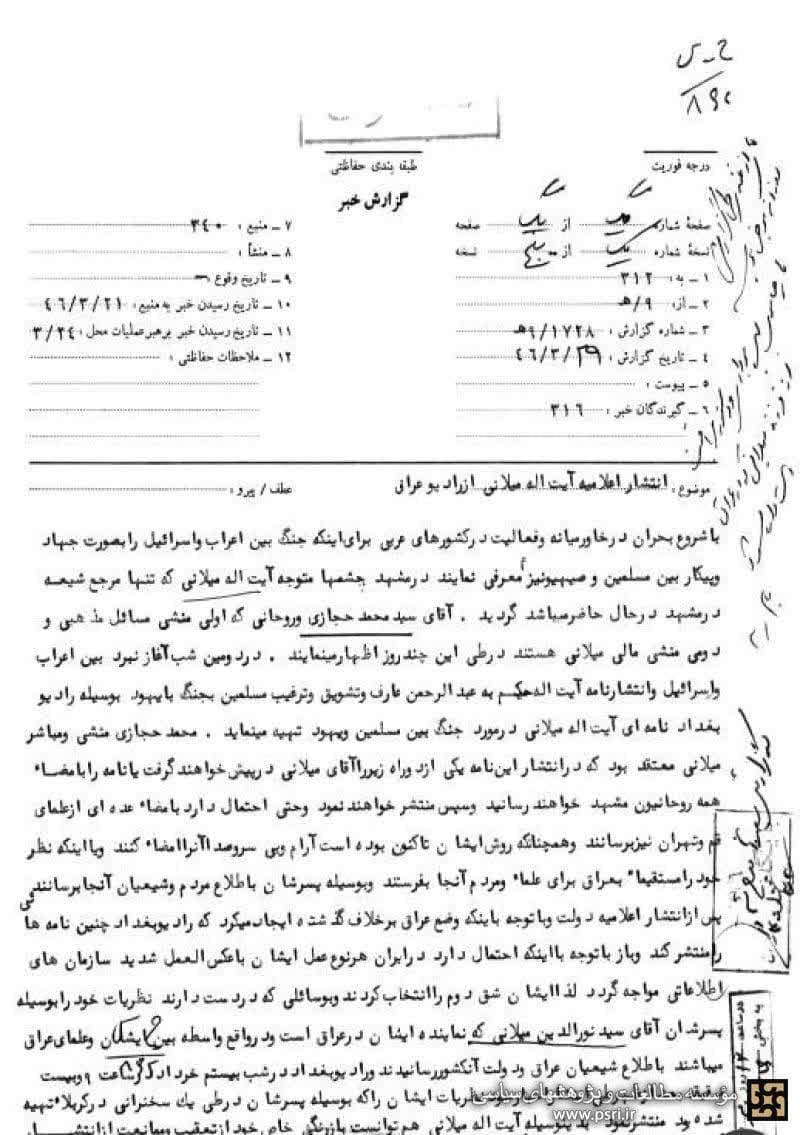 ۸۹۰
درجه فوریت
طبقه بندی حفاظتی
گزارش خبر
صفحه شماره یک از یک صفحه
نسخه شماره یک از پنج نسخه
۱ ـ به : ۳۱۲
۲ ـ از : ۹/ﻫ
۳ ـ شماره گزارش : ۹/۱۷۲۸ﻫ
۴ ـ تاریخ گزارش : ۴۶/۳/۲۹
۵ ـ پیوست :
۶ ـ گیرندگان خبر : ۳۱۶
۷ ـ منبع : ۳۴۰
۸ ـ منشأ :
۹ ـ تاریخ وقوع :
۱۰ ـ تاریخ رسیدن خبر به منبع : ۴۶/۳/۲۱
۱۱ ـ تاریخ رسیدن خبر برهبر عملیات محل : ۳/۲۴
۱۲ ـ ملاحظات حفاظتی :
موضوع : انتشار اعلامیه آیت اله میلانی از رادیو عراق
عطف / پیرو :
با شروع بحران در خاورمیانه و فعالیت در کشورهای عربی برای اینکه جنگ بین اعراب و اسرائیل را بصورت جهاد
و پیکار بین مسلمین و صیهیونیزم معرفی نمایند در مشهد چشمها متوجه آیت اله میلانی که تنها مرجع شیعه
در مشهد در حال حاضر میباشد گردید . آقای سید محمد حجازی و روحانی که اولی منشی مسائل مذهبی و
دومی منشی مالی میلانی هستند در طی این چند روز اظهار مینمایند . در دومین شب آغاز نبرد بین اعراب
و اسرائیل و انتشار نامه آیت اله حکیم به عبد الرحمن عارف و تشویق و ترغیب مسلمین بجنگ با یهود بوسیله رادیو
بغداد نامه ای آیت اله میلانی در مورد جنگ بین مسلمین و یهود تهیه مینماید . محمد حجازی منشی و مباشر
میلانی معتقد بود که در انتشار این نامه یکی از دو راه زیر را آقای میلانی در پیش خواهند گرفت یا نامه را بامضاء
همه روحانیون مشهد خواهند رسانید و سپس منتشر خواهند نمود و حتی احتمال دارد بامضاء عده ای از علمای
قم و تهران نیز برسانند و همچنانکه روش ایشان تاکنون بوده است آرام و بی سر و صدا آنرا امضاء کنند و یا اینکه نظر
خود را مستقیماً بعراق برای علماء و مردم آنجا بفرستند و بوسیله پسرشان باطلاع مردم و شیعیان آنجا برسانند
پس از انتشار اعلامیه دولت و با توجه باینکه وضع عراق برخلاف گذشته ایجاد میکرد که رادیو بغداد چنین نامه ها
را منتشر کند و باز با توجه بااینکه احتمال دارد در ایران هر نوع عمل ایشان با عکس العمل شدید سازمان های
اطلاعاتی مواجه گردد لذا ایشان شق دوم را انتخاب کردند و بوسائلی که در دست دارند نظریات خود را بوسیله
پسرشان آقای سید نورالدین میلانی که نماینده ایشان در عراق است و در واقع واسطه بین ایشان و علمای عراق
میباشند باطلاع شیعیان عراق و دولت آنکشور رسانیدند و رادیو بغداد در شب بیستم خرداد ساعت ۹ و بیست
دقیقه نظریات ایشان را که بوسیله پسرشان در طی یک سخنرانی در کربلا تهیه
شده بود منتشر نمود بدینوسیله آیت اله میلانی هم توانست با زرنگی خاص خود از تعقیب و ممانعت از انتشار
مؤسسه مطالعات و پژوهشهای سیاسی
www.psri.ir